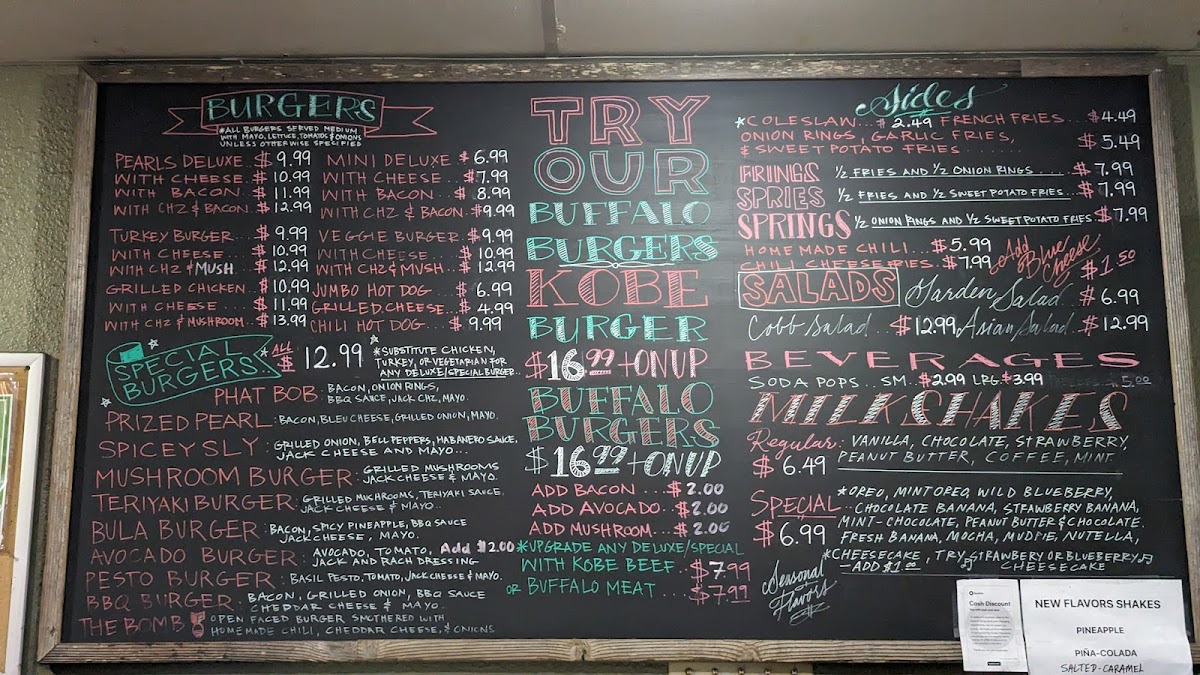 BURGERS
*ALL BURGERS SERVED MEDIUM
WITH MAYO, LETTUCE, TOMATOS & ONIONS
UNLESS OTHERWISE SPECIFIED
PEARLS DELUXE.. $ 9.99
WITH CHEESE.. $ 10.99
WITH BACON.. $ 11.99
WITH CHZ & BACON. $ 12.99
MINI DELUXE $ 6.99
WITH CHEESE... $7.99
WITH BACON... $ 8.99
WITH CHZ & BACON.. $9.99
TURKEY BURGER... $ 9.99
WITH CHEESE.... $ 10.99
WITH CHZ & MUSH.. $ 12.99
VEGGIE BURGER $ 9.99
WITH CHEESE.... $ 10.99
WITH CHZ & MUSH... $ 12.99
GRILLED CHICKEN.. $10.99
WITH CHEESE.... $ 11.99
WITH CHZ & MUSHROOM.. $ 13.99
JUMBO HOT DOG... $ 6.99
GRILLED CHEESE... $ 4.99
CHILI HOT DOG... $ 9.99
SPECIAL BURGERS:
ALL $ 12.99
*SUBSTITUTE CHICKEN,
TURKEY, OR VEGETARIAN FOR
ANY DELUXE/SPECIAL BURGER...
PHAT BOB: BACON, ONION RINGS,
BBQ SAUCE, JACK CHZ, MAYO.
PRIZED PEARL: BACON, BLEU CHEESE, GRILLED ONION, MAYO.
SPICEY SLY: GRILLED ONION, BELL PEPPERS, HABANERO SAUCE,
JACK CHEESE AND MAYO...
MUSHROOM BURGER: GRILLED MUSHROOMS
JACK CHEESE & MAYO.
TERIYAKI BURGER: GRILLED MUSHROOMS, TERIYAKI SAUCE.
JACK CHEESE & MAYO..
BULA BURGER: BACON, SPICY PINEAPPLE, BBQ SAUCE
JACK CHEESE, MAYO.
AVOCADO BURGER: AVOCADO, TOMATO, Add $2.00
JACK AND RACH DRESSING
PESTO BURGER: BASIL PESTO, TOMATO, JACK CHEESE & MAYO.
BBQ BURGER: BACON, GRILLED ONION, BBQ SAUCE
CHEDDAR CHEESE & MAYO.
THE BOMB: OPEN FACED BURGER SMOTHERED WITH
HOMEMADE CHILI, CHEDDAR CHEESE, & ONIONS
TRY
OUR
BUFFALO
BURGERS
KOBE
BURGER
$16.99 + ON UP
BUFFALO
BURGERS
$16.99 + ON UP
ADD BACON ... $ 2.00
ADD AVOCADO.. $2.00
ADD MUSHROOM... $ 2.00
*UPGRADE ANY DELUXE/SPECIAL
WITH KOBE BEEF.. $7.99
OR BUFFALO MEAT .... $7.99
Sides
*COLESLAW... $ 2.49 FRENCH FRIES... $4.49
ONION RINGS, GARLIC FRIES,
& SWEET POTATO FRIES ........ $ 5.49
FRINGS 1/2 FRIES AND 1/2 ONION RINGS..... $ 7.99
SPRIES 1/2 FRIES AND 1/2 SWEET POTATO FRIES... $ 7.99
SPRINGS 1/2 ONION RINGS AND 1/2 SWEET POTATO FRIES $7.99
HOMEMADE CHILI... $5.99
CHILI CHEESE FRIES. $7.99
Add Blue Cheese $1.50
SALADS Garden Salad.. $ 6.99
Cobb Salad.. $12.99 Asian Salad.. $ 12.99
BEVERAGES
SODA POPS... SM. $2.99 LRG. $3.99 5.00
MILKSHAKES
Regular: VANILLA, CHOCOLATE, STRAWBERRY,
$ 6.49 PEANUT BUTTER, COFFEE, MINT
Special *OREO, MINT OREO, WILD BLUEBERRY,
$6.99 CHOCOLATE BANANA, STRAWBERRY BANANA,
MINT-CHOCOLATE, PEANUT BUTTER & CHOCOLATE.
FRESH BANANA, MOCHA, MUDPIE, NUTELLA,
*CHEESECAKE, TRY STRAWBERY OR BLUEBERRY
- ADD $1.00 CHEESECAKE
Seasonal
Flavors
Cash Discount
NEW FLAVORS SHAKES
PINEAPPLE
PIÑA-COLADA
SALTED-CARAMEL